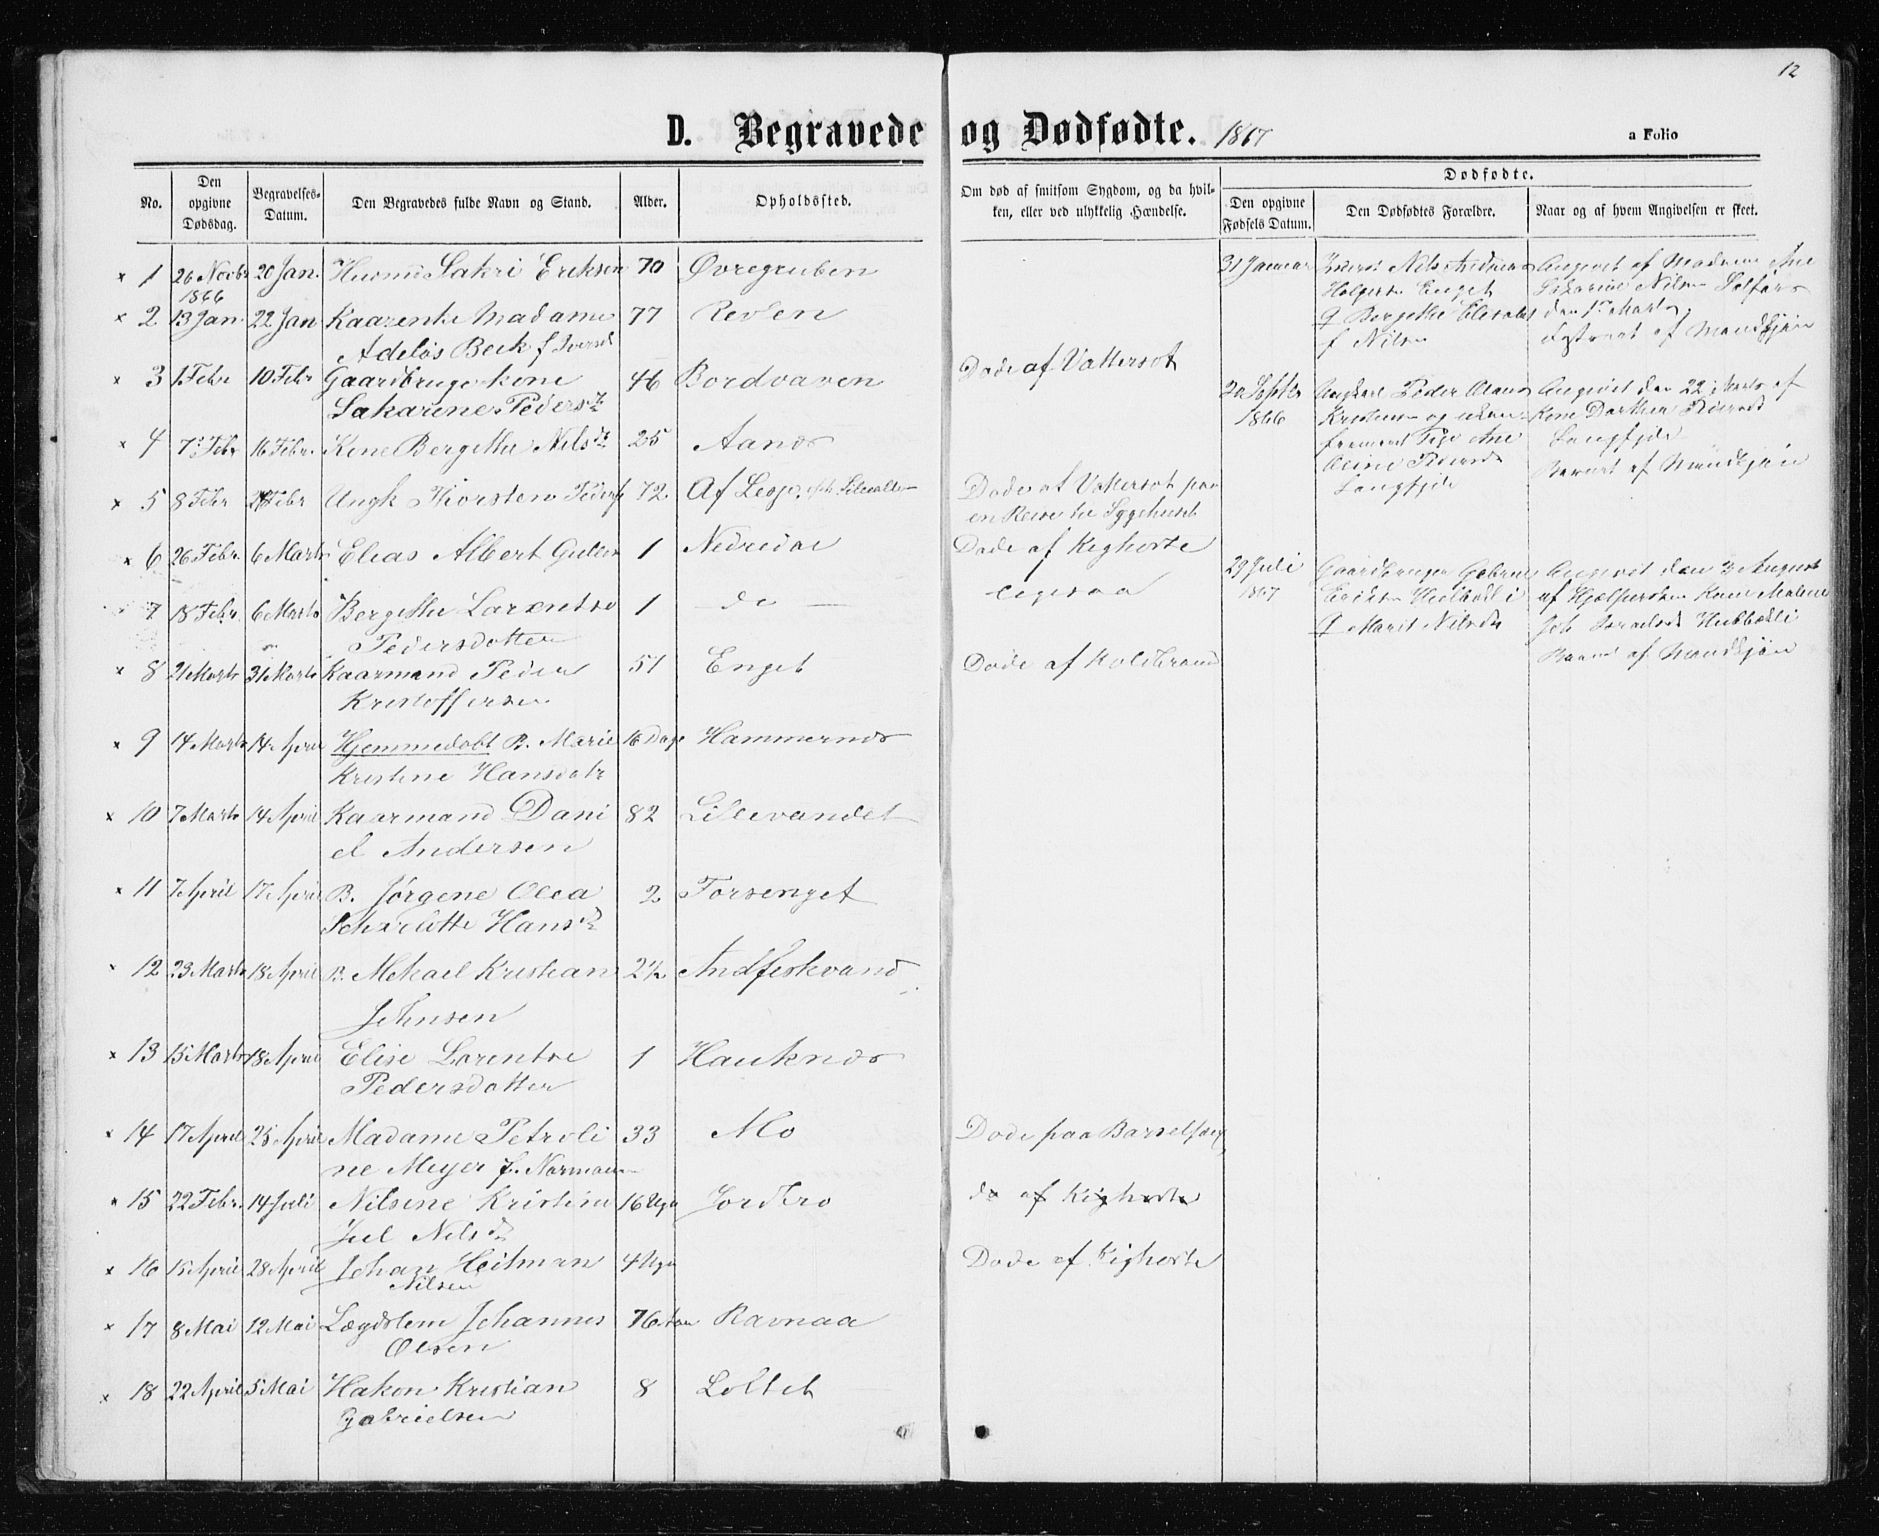 12
D. Begravede og Dødfødte. 1867
a Folio
No.
Den opgivne Dødsdag.
Begravelses-Datum.
Den Begravedes fulde Navn og Stand.
Alder.
Opholdssted.
Om død af smitsom Sygdom, og da hvilken, eller ved ulykkelig Hændelse.
Dødfødte.
Den opgivne Fødsels Datum.
Den Dødfødtes Forældre.
Naar og af hvem Angivelsen er skeet.
× 1 26 Novbr 20 Jan. Sakri Eriksen 70 Øvregruben
1866
× 2 13 Jan 22 Jan Kaarenke Madame 77 Revlen
Adeløs Beck f Iversd
× 3 1 Febr 10 Febr Gaardbrugerkone 46 Bordvaven Døde af Vattersot
Sakarine Pedersdr
× 4 7 Febr 16 Febr. Kone Bergithe Nilsdr 25 Aanes
× 5 8 Febr Febr Ungk Thorsten Peders 72 Af Lesje Døde af Vattersot paa
en Reise til Sygehuset
× 6 26 Febr. 6 Marts Elias Albert 1 Nedredal Døde af Kighoste
7 18 Febr. 6 Marts Bergithe Larentse 1 — do — ligesaa
Pedersdotter
× 8 21 Marts 31 Marts Kaarmand Peder 51 Enget Døde af Koldbrand
Kristoffersen
× 9 14 Marts 14 April Hjemmedøbt B. Marie 16 Dage Hammernes
Kristine Hansdatr
× 10 7 Marts 14 April Kaarmand Dani 82 Lillevandet
el Andersen
× 11 7 April 17 April B. Jørgene Olea 2 Forsenget
Scharlotte Hansdr
12 23 Marts 18 April B. Mekael Kristian 2½ Andfiskvand
Johnsen
× 13 15 Marts 18 April Elise Lorentse 1 Hauknes
Pedersdotter
× 14 17 April 28 April Madame Petroli 33 Mo Døde paa Barselseng
ne Meyer f. Normann
× 15 22 Febr. 14 Juli Nilsine Kristine 16 Uger Jordbro do af Kighoste
Juel Nilsdr
× 16 15 April 28 April Johan Heitman 4 Uger Døde af Kighoste
Nilsen
× 17 8 Mai 12 Mai Lægdslem Johannes 76 Aar Ravnaa
Olsen
× 18 22 April 5 Mai Hakon Kristian 8 Loltet
Gabrielsen
31 Januar
Nils Andreas
Enget
f Nilsen
Angivet af Madame Ane
Sakarine Nilsen Selfors
den 1 Marts
af Mandkjøn
1866
Ungkarl Peder Olaus
Kristensen og
Pige Ane
Oline Pedersdr
Langfjeld
Angivet den 22 Marts af
Kone Dorthea Pedersdr
Langfjeld
Barnet af Mandkjøn
29 Juli
1867
Gaardbruger Gabriel
Eriksen
Marit Nilsdr
Angivet den 3 August
af Hjælpersken Kone Malene
Barnet af Mandkjøn